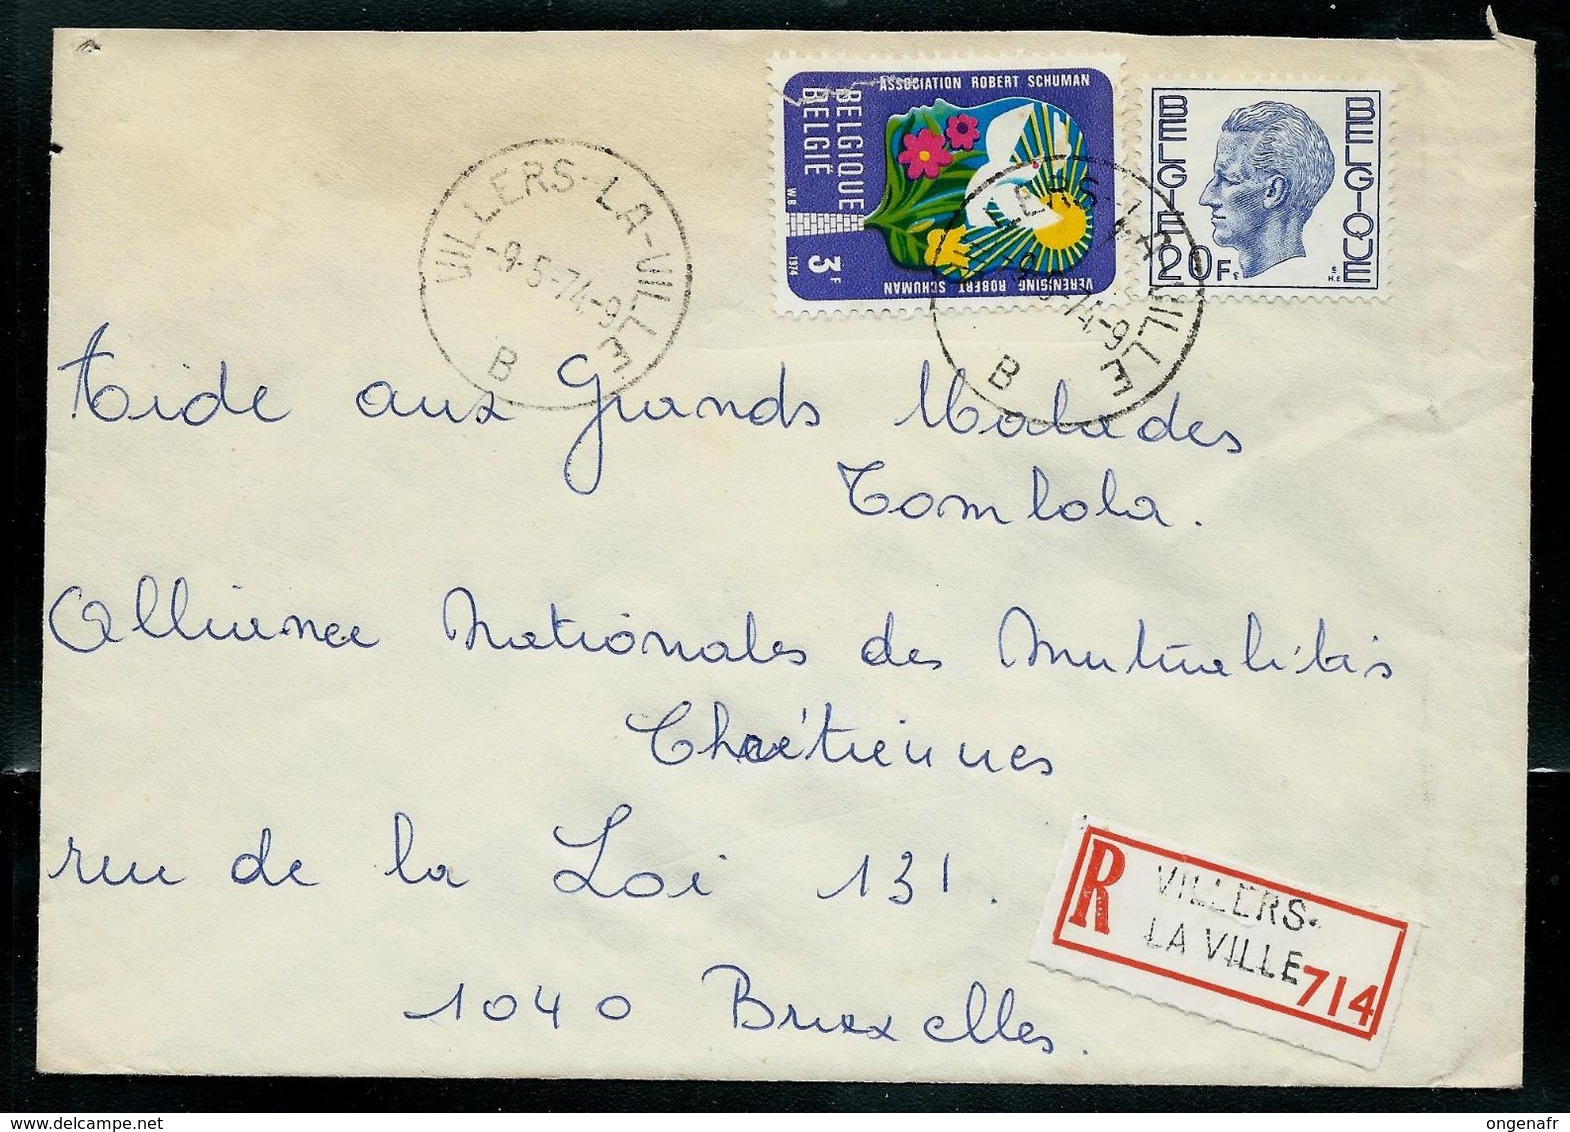 ASSOCIATION ROBERT SCHUMAN
BELGIQUE
BELGIË
W.B.
1974
3F
VERENIGING ROBERT SCHUMAN
BELGIË
BELGIQUE
20F
VILLERS-LA-VILLE
-9-5-74-9
B
LLERS-LA-VILLE
-9-5-74-9
B
Aide aux Grands Malades
Tombola.
Alliance Nationales des Mutualités
Chrétiennes
rue de la Loi 131.
1040 Bruxelles.
R VILLERS-
LA VILLE 714
www.delcampe.net
ongenafr